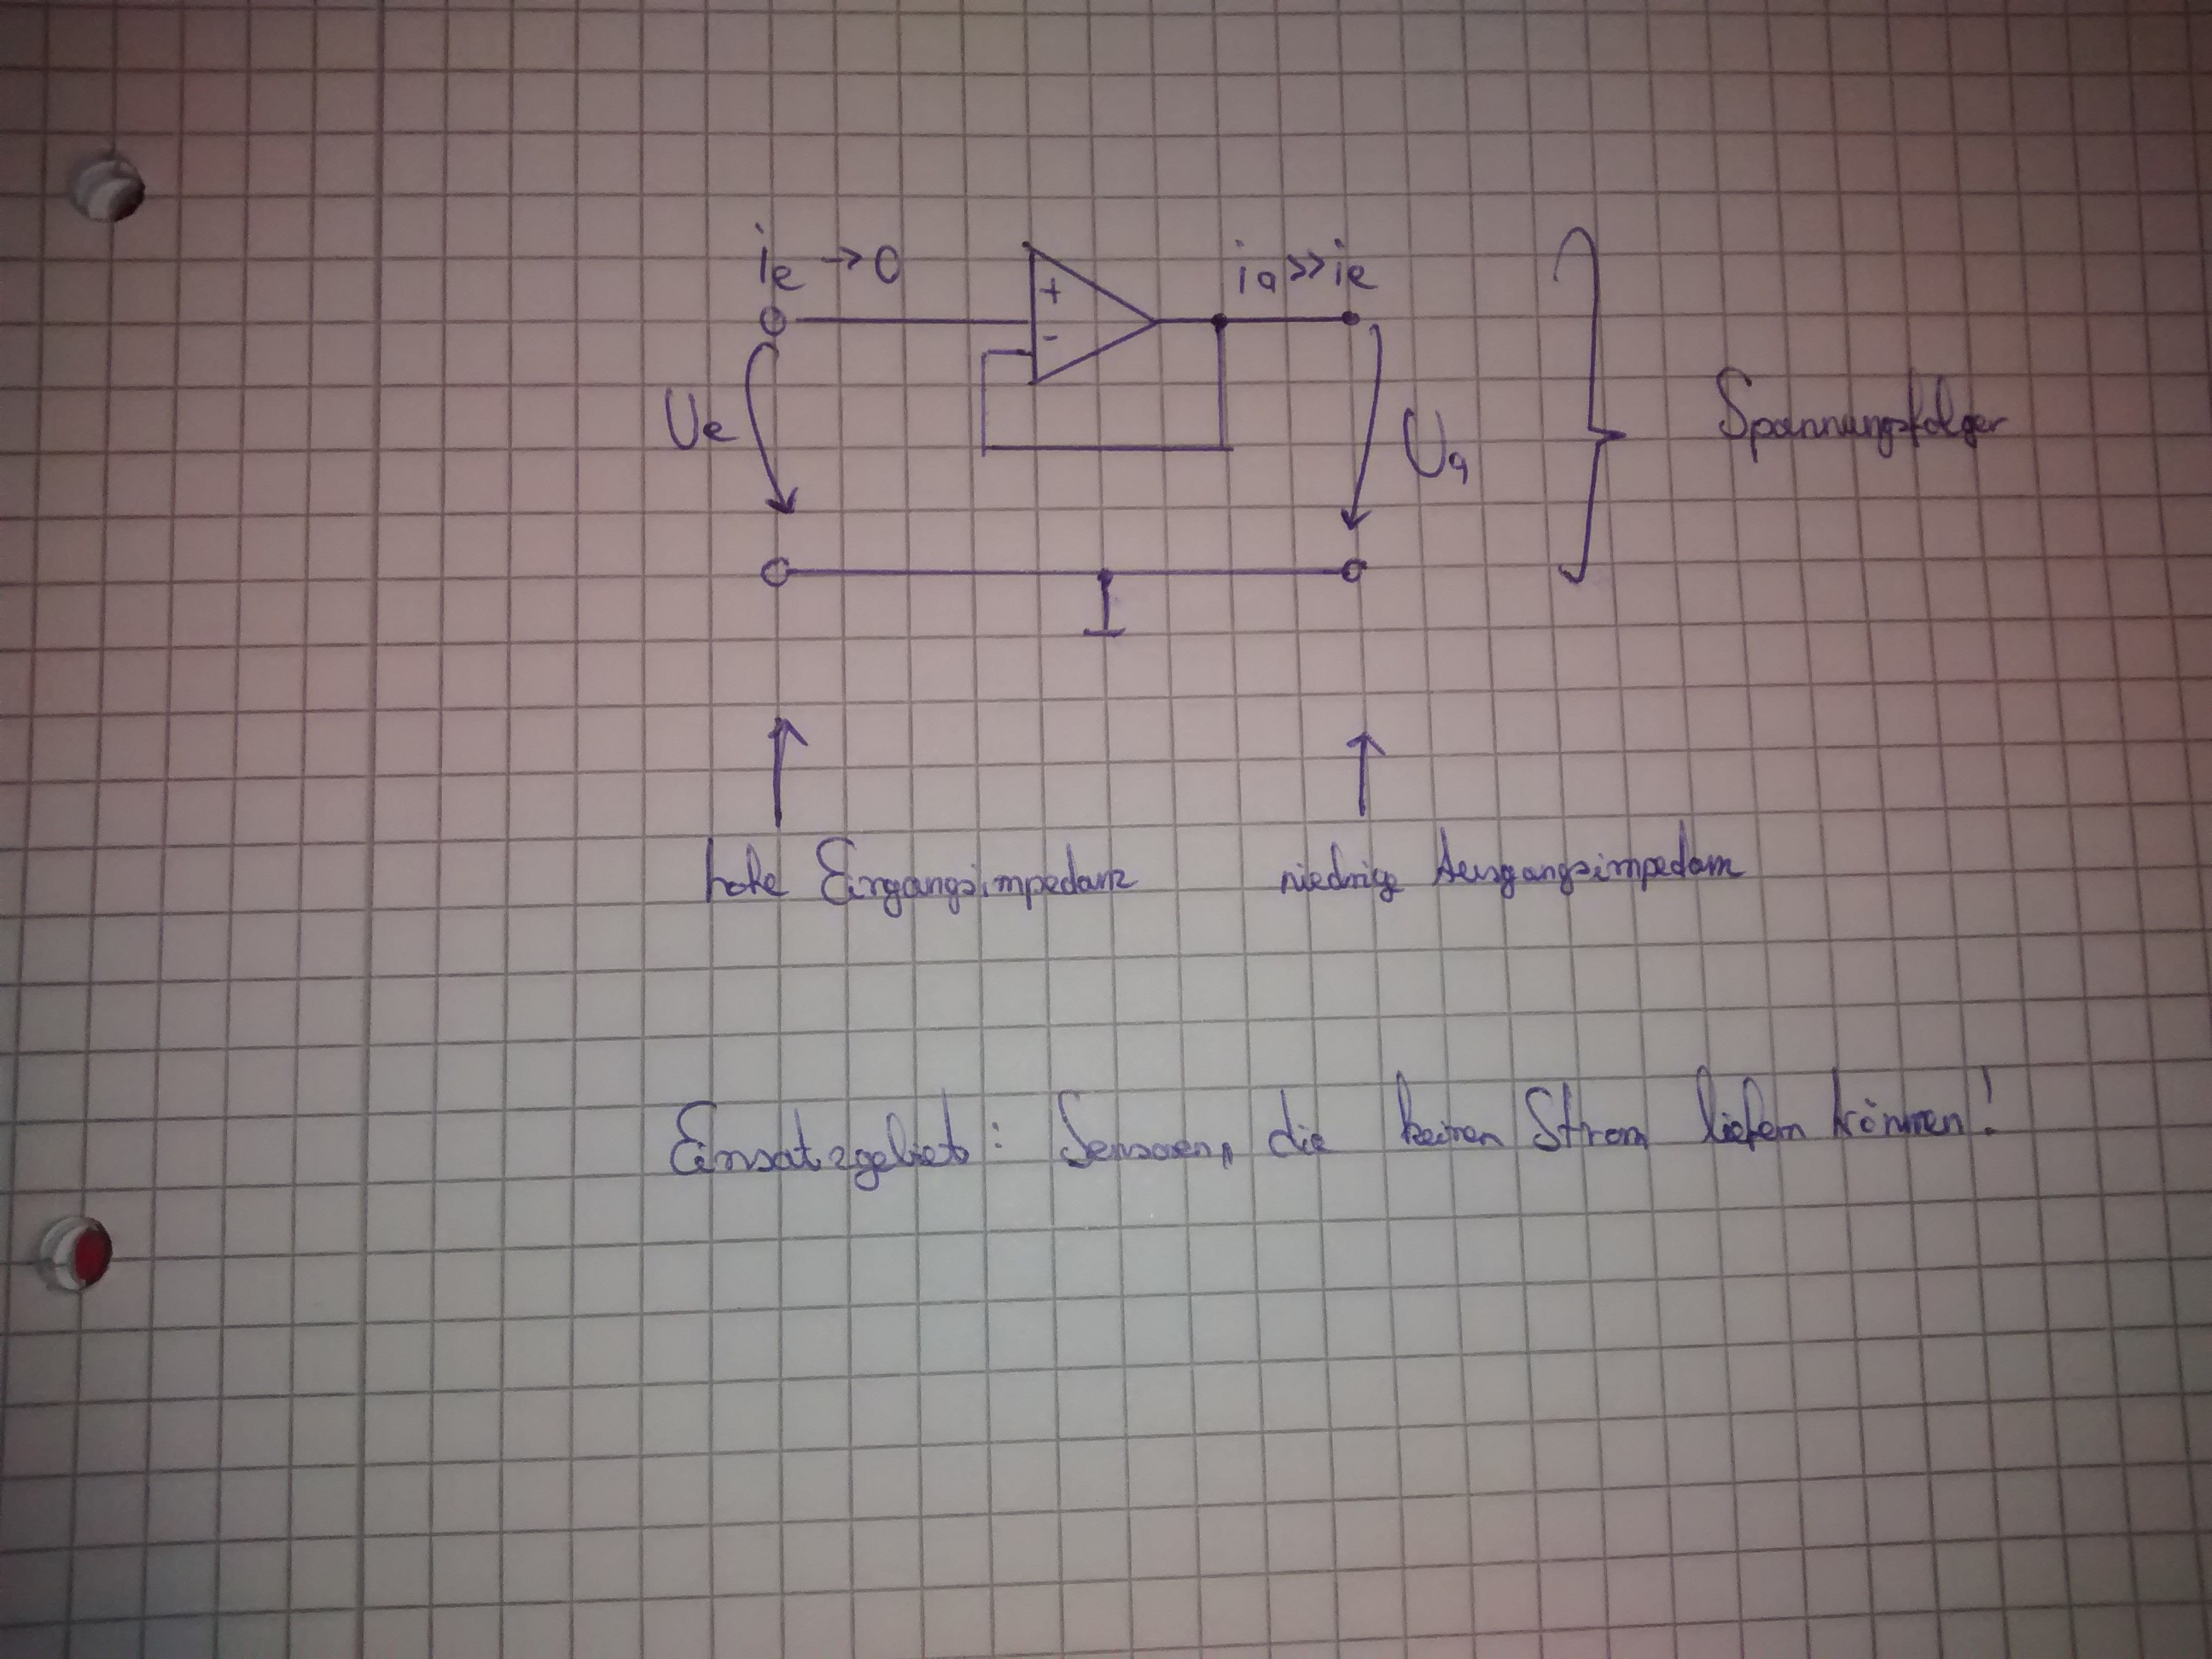 ie → 0
ia >> ie
+
-
Ue
Ua
Spannungsfolger
hohe Eingangsimpedanz
niedrige Ausgangsimpedanz
Einsatzgebiet: Sensoren, die keinen Strom liefern können!